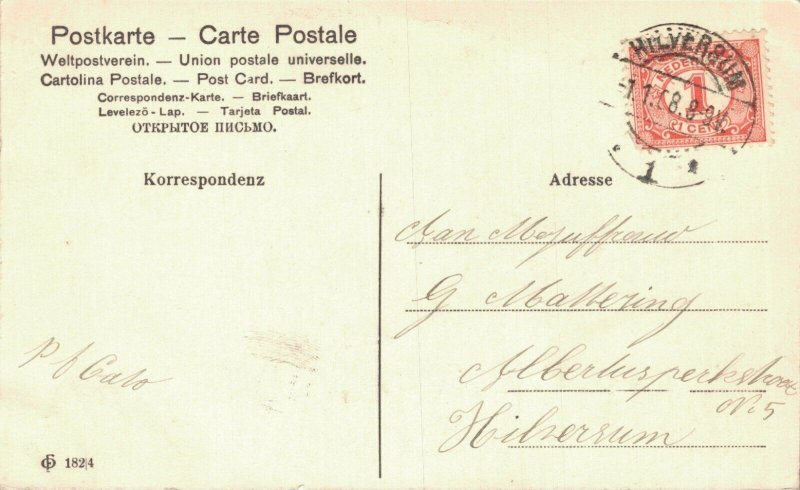 Postkarte – Carte Postale
Weltpostverein. — Union postale universelle.
Cartolina Postale. — Post Card. — Brefkort.
Correspondenz-Karte. — Briefkaart.
Levelező - Lap. — Tarjeta Postal.
ОТКРЫТОЕ ПИСЬМО.
HILVERSUM
NEDERL
1
CENT
1
Korrespondenz
Adresse
Aan Mejuffrouw
G Mattering
Albertusperkstraat
No. 5
Hilversum
182/4